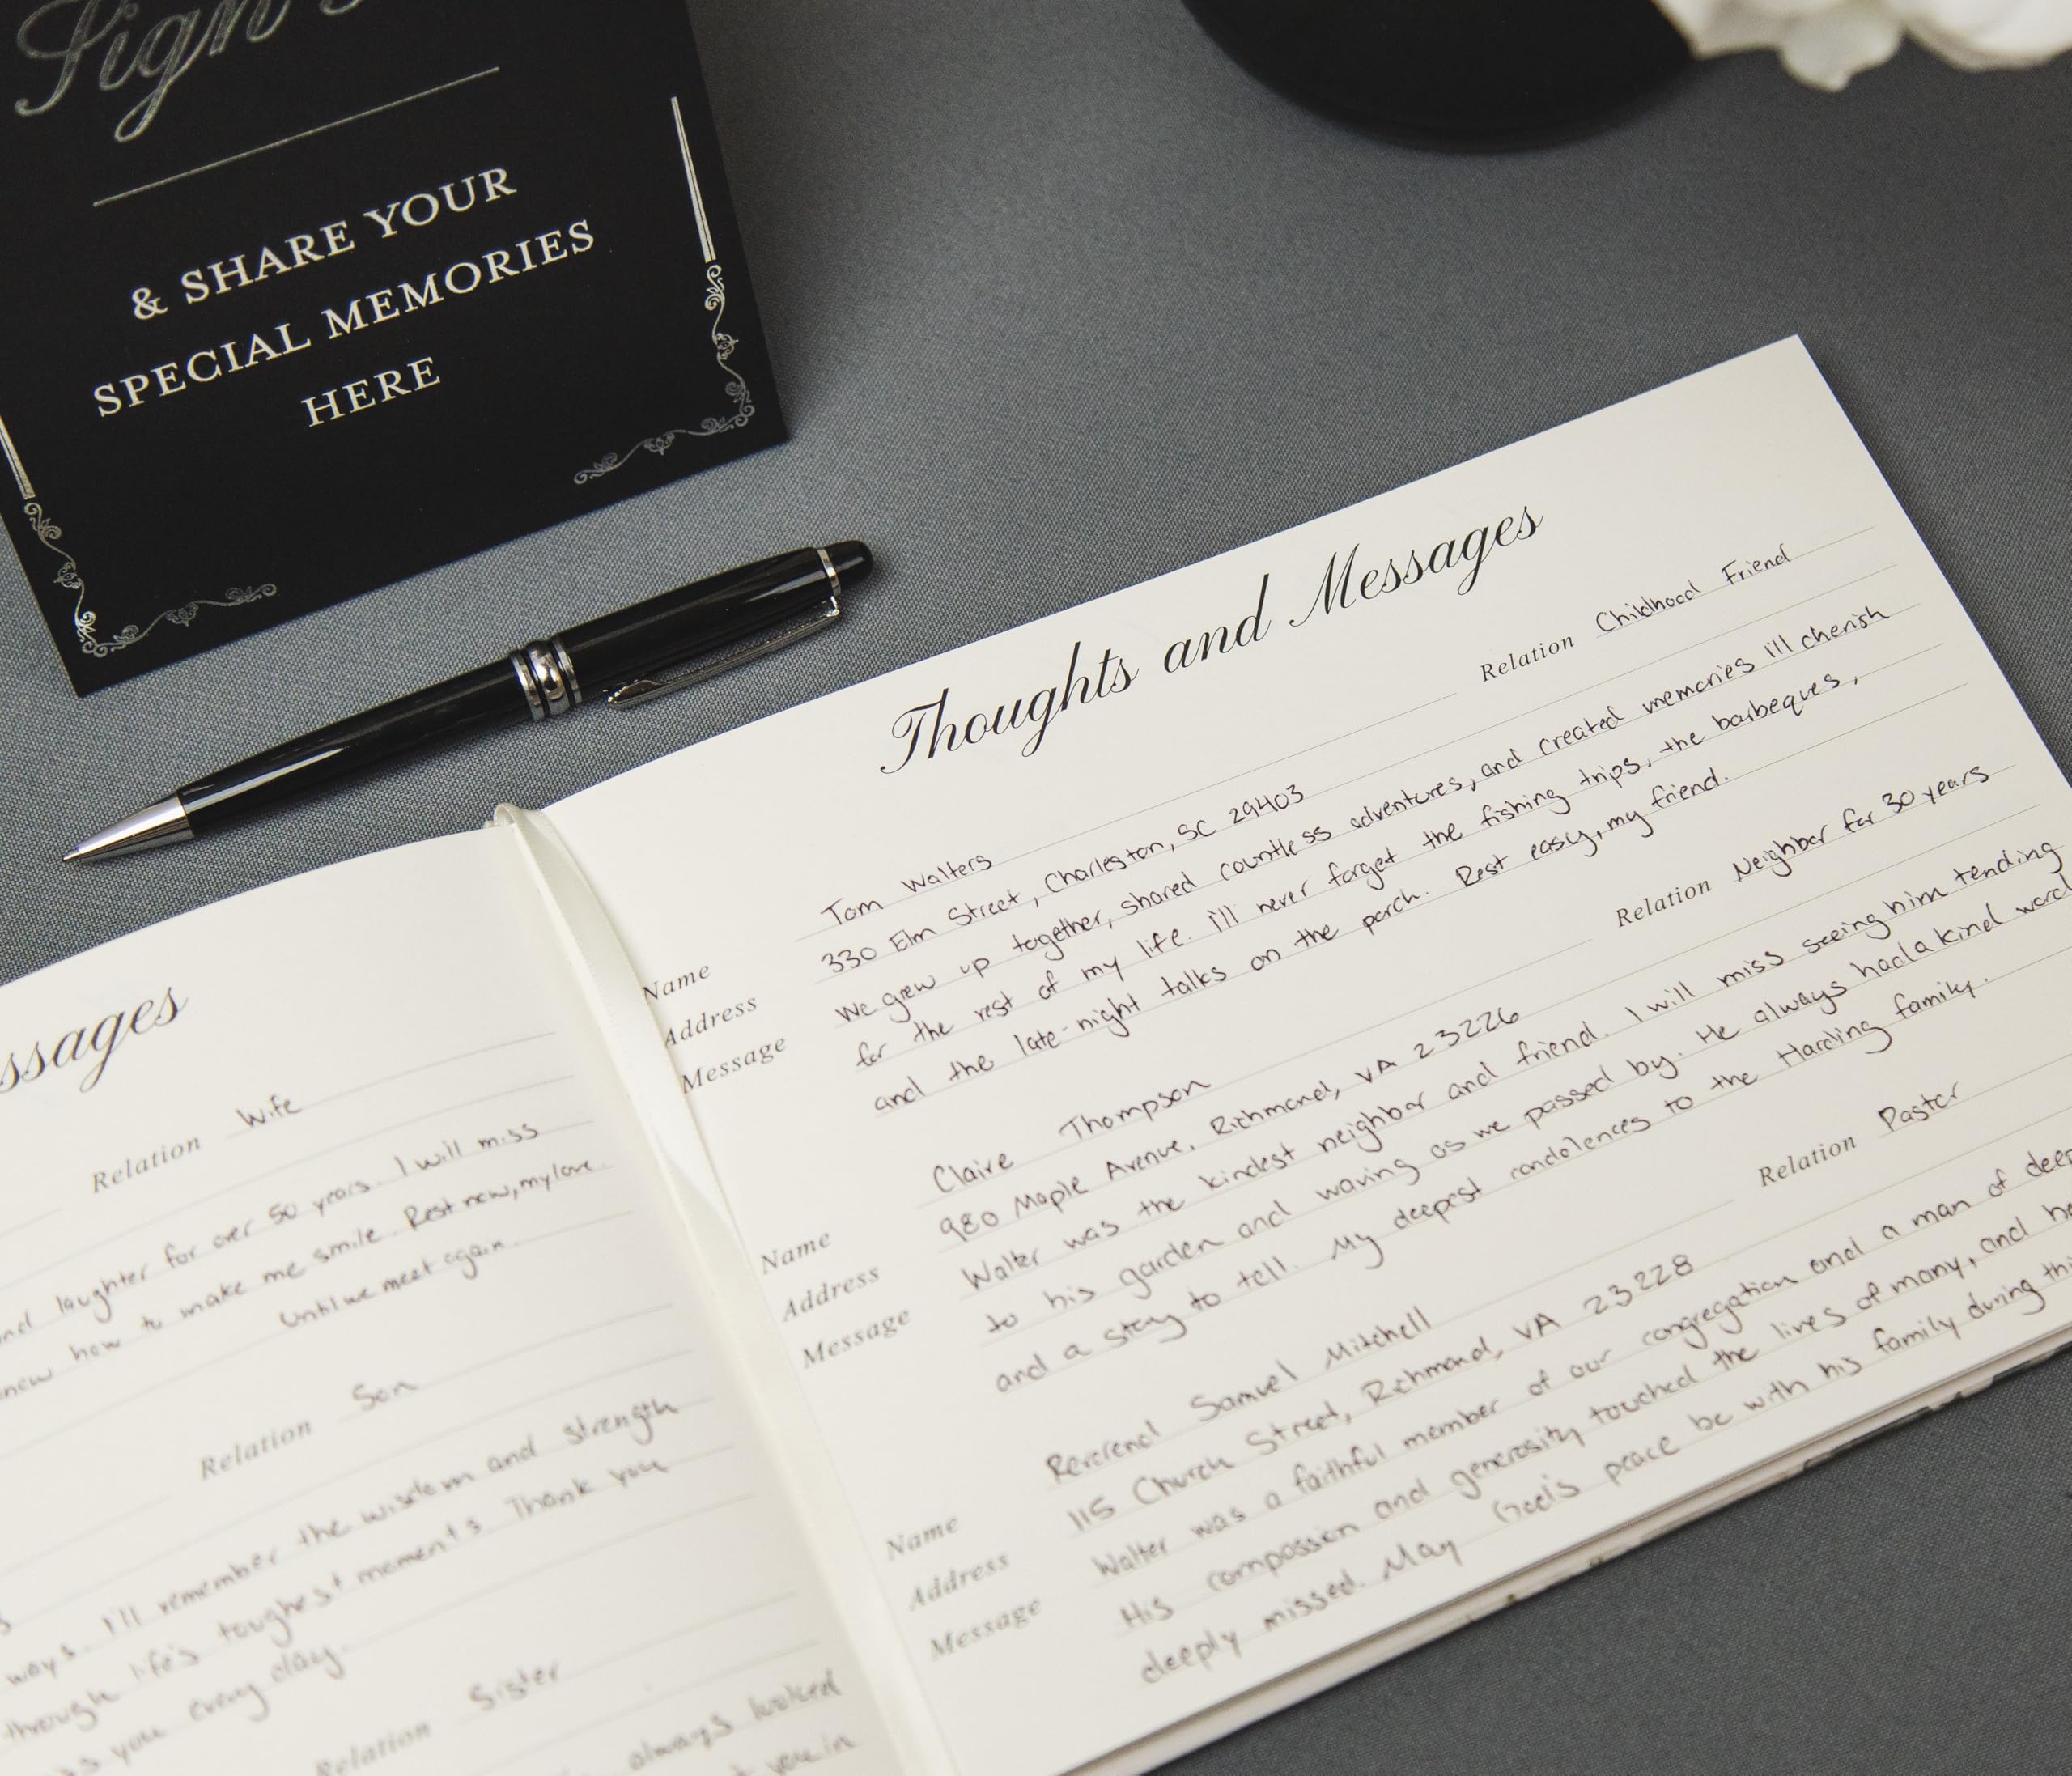 Sign
& SHARE YOUR
SPECIAL MEMORIES
HERE
ssages
Relation Wife
laughter for over 50 years. I will miss
how to make me smile. Rest now, my love.
Until we meet again.
Relation Son
ways. I'll remember the wisdom and strength
through life's toughest moments. Thank you
you every day.
Relation Sister
always looked
you in
Thoughts and Messages
Name Tom Walters Relation Childhood Friend
Address 330 Elm Street, Charleston, SC 29403
Message We grew up together, shared countless adventures, and created memories I'll cherish
for the rest of my life. I'll never forget the fishing trips, the barbeques,
and the late-night talks on the porch. Rest easy, my friend.
Name Claire Thompson Relation Neighbor for 30 years
Address 980 Maple Avenue, Richmond, VA 23226
Message Walter was the kindest neighbor and friend. I will miss seeing him tending
to his garden and waving as we passed by. He always had a kind word
and a story to tell. My deepest condolences to the Harding family.
Name Reverend Samuel Mitchell Relation Pastor
Address 115 Church Street, Richmond, VA 23228
Message Walter was a faithful member of our congregation and a man of deep
His compassion and generosity touched the lives of many, and he
deeply missed. May God's peace be with his family during this